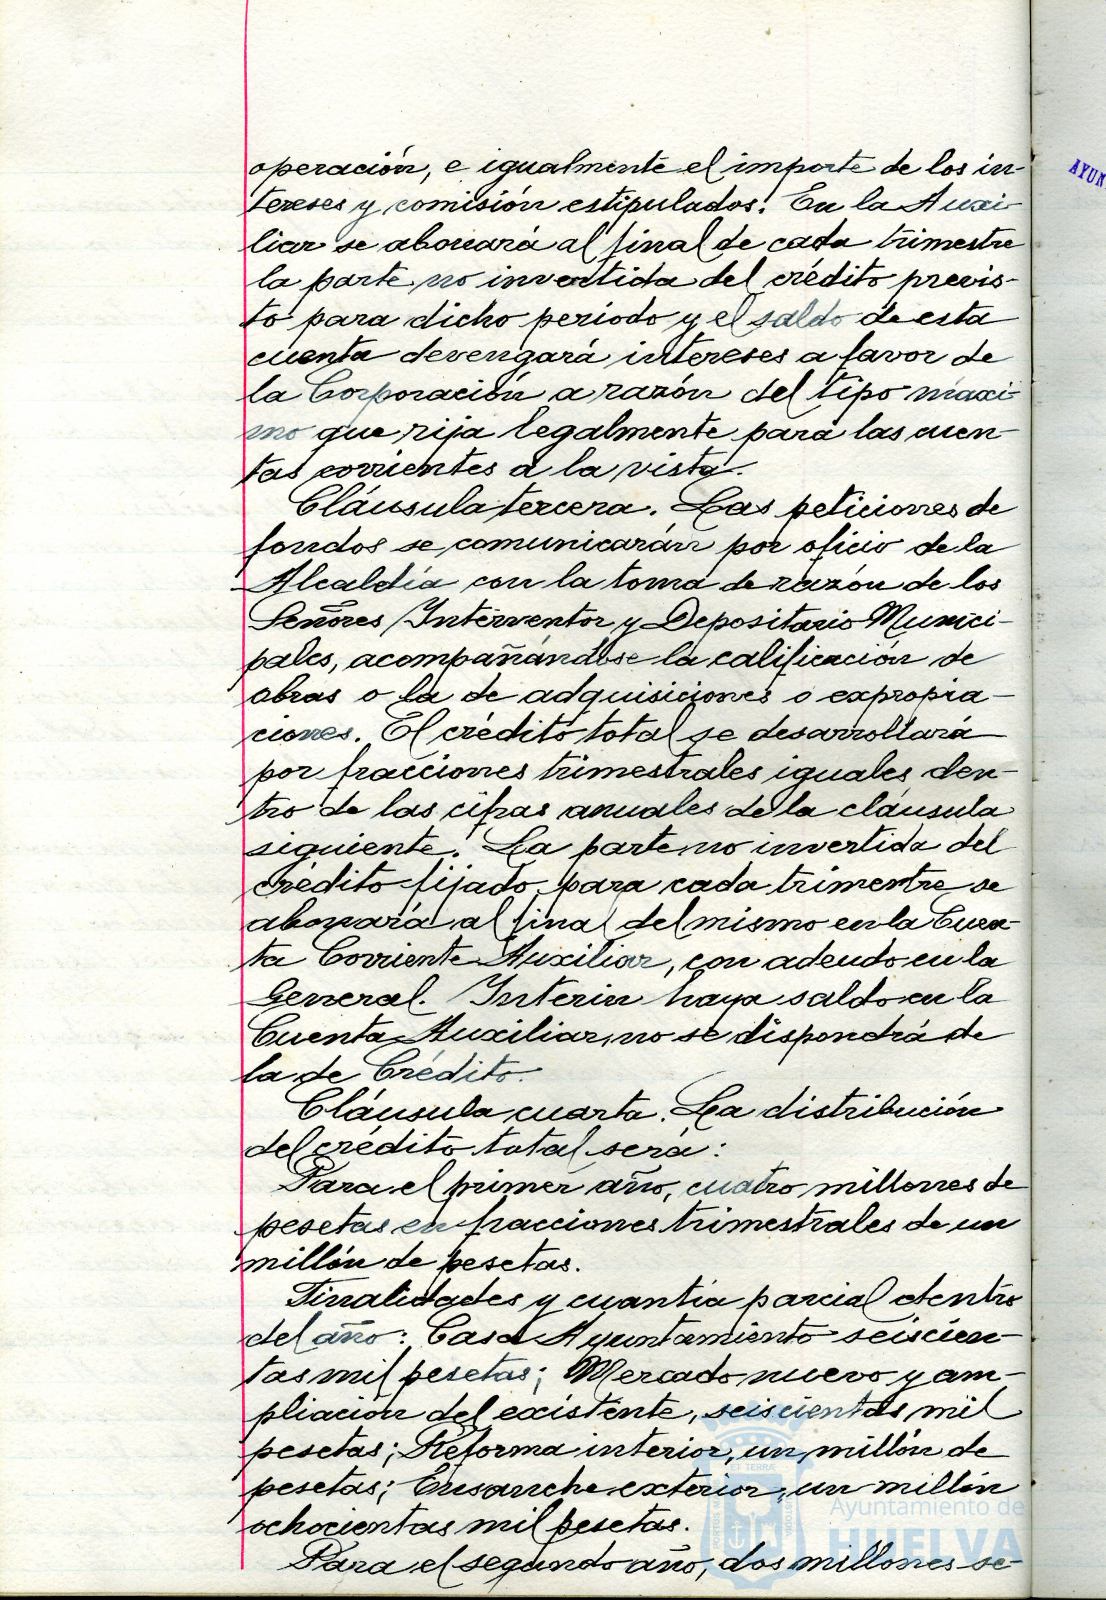 operación, e igualmente el importe de los in-
tereses y comisión estipulados. En la Auxi-
liar se abonará al final de cada trimestre
la parte no invertida del crédito previs-
to para dicho periodo y el saldo de esta
cuenta devengará intereses a favor de
la Corporación a razón del tipo máxi-
mo que rija legalmente para las cuen-
tas corrientes a la vista.
Cláusula tercera. Las peticiones de
fondos se comunicarán por oficio de la
Alcaldía con la toma de razón de los
Señores Interventor y Depositario Munici-
pales, acompañándose la calificación de
obras o la de adquisiciones o expropia-
ciones. El crédito total se desarrollará
por fracciones trimestrales iguales den-
tro de las cifras anuales de la cláusula
siguiente. La parte no invertida del
crédito fijado para cada trimestre se
abonará al final del mismo en la Cuen-
ta Corriente Auxiliar, con adeudo en la
General. Interin haya saldo en la
Cuenta Auxiliar, no se dispondrá de
la de Crédito.
Cláusula cuarta. La distribución
del crédito total será:
Para el primer año, cuatro millones de
pesetas en fracciones trimestrales de un
millón de pesetas.
Finalidades y cuantía parcial dentro
del año: Casa Ayuntamiento seiscien-
tas mil pesetas; Mercado nuevo y am-
pliación del existente, seiscientas mil
pesetas; Reforma interior, un millón de
pesetas; Ensanche exterior, un millón
ochocientas mil pesetas.
Para el segundo año, dos millones se-
AYUN
Ayuntamiento de
HUELVA